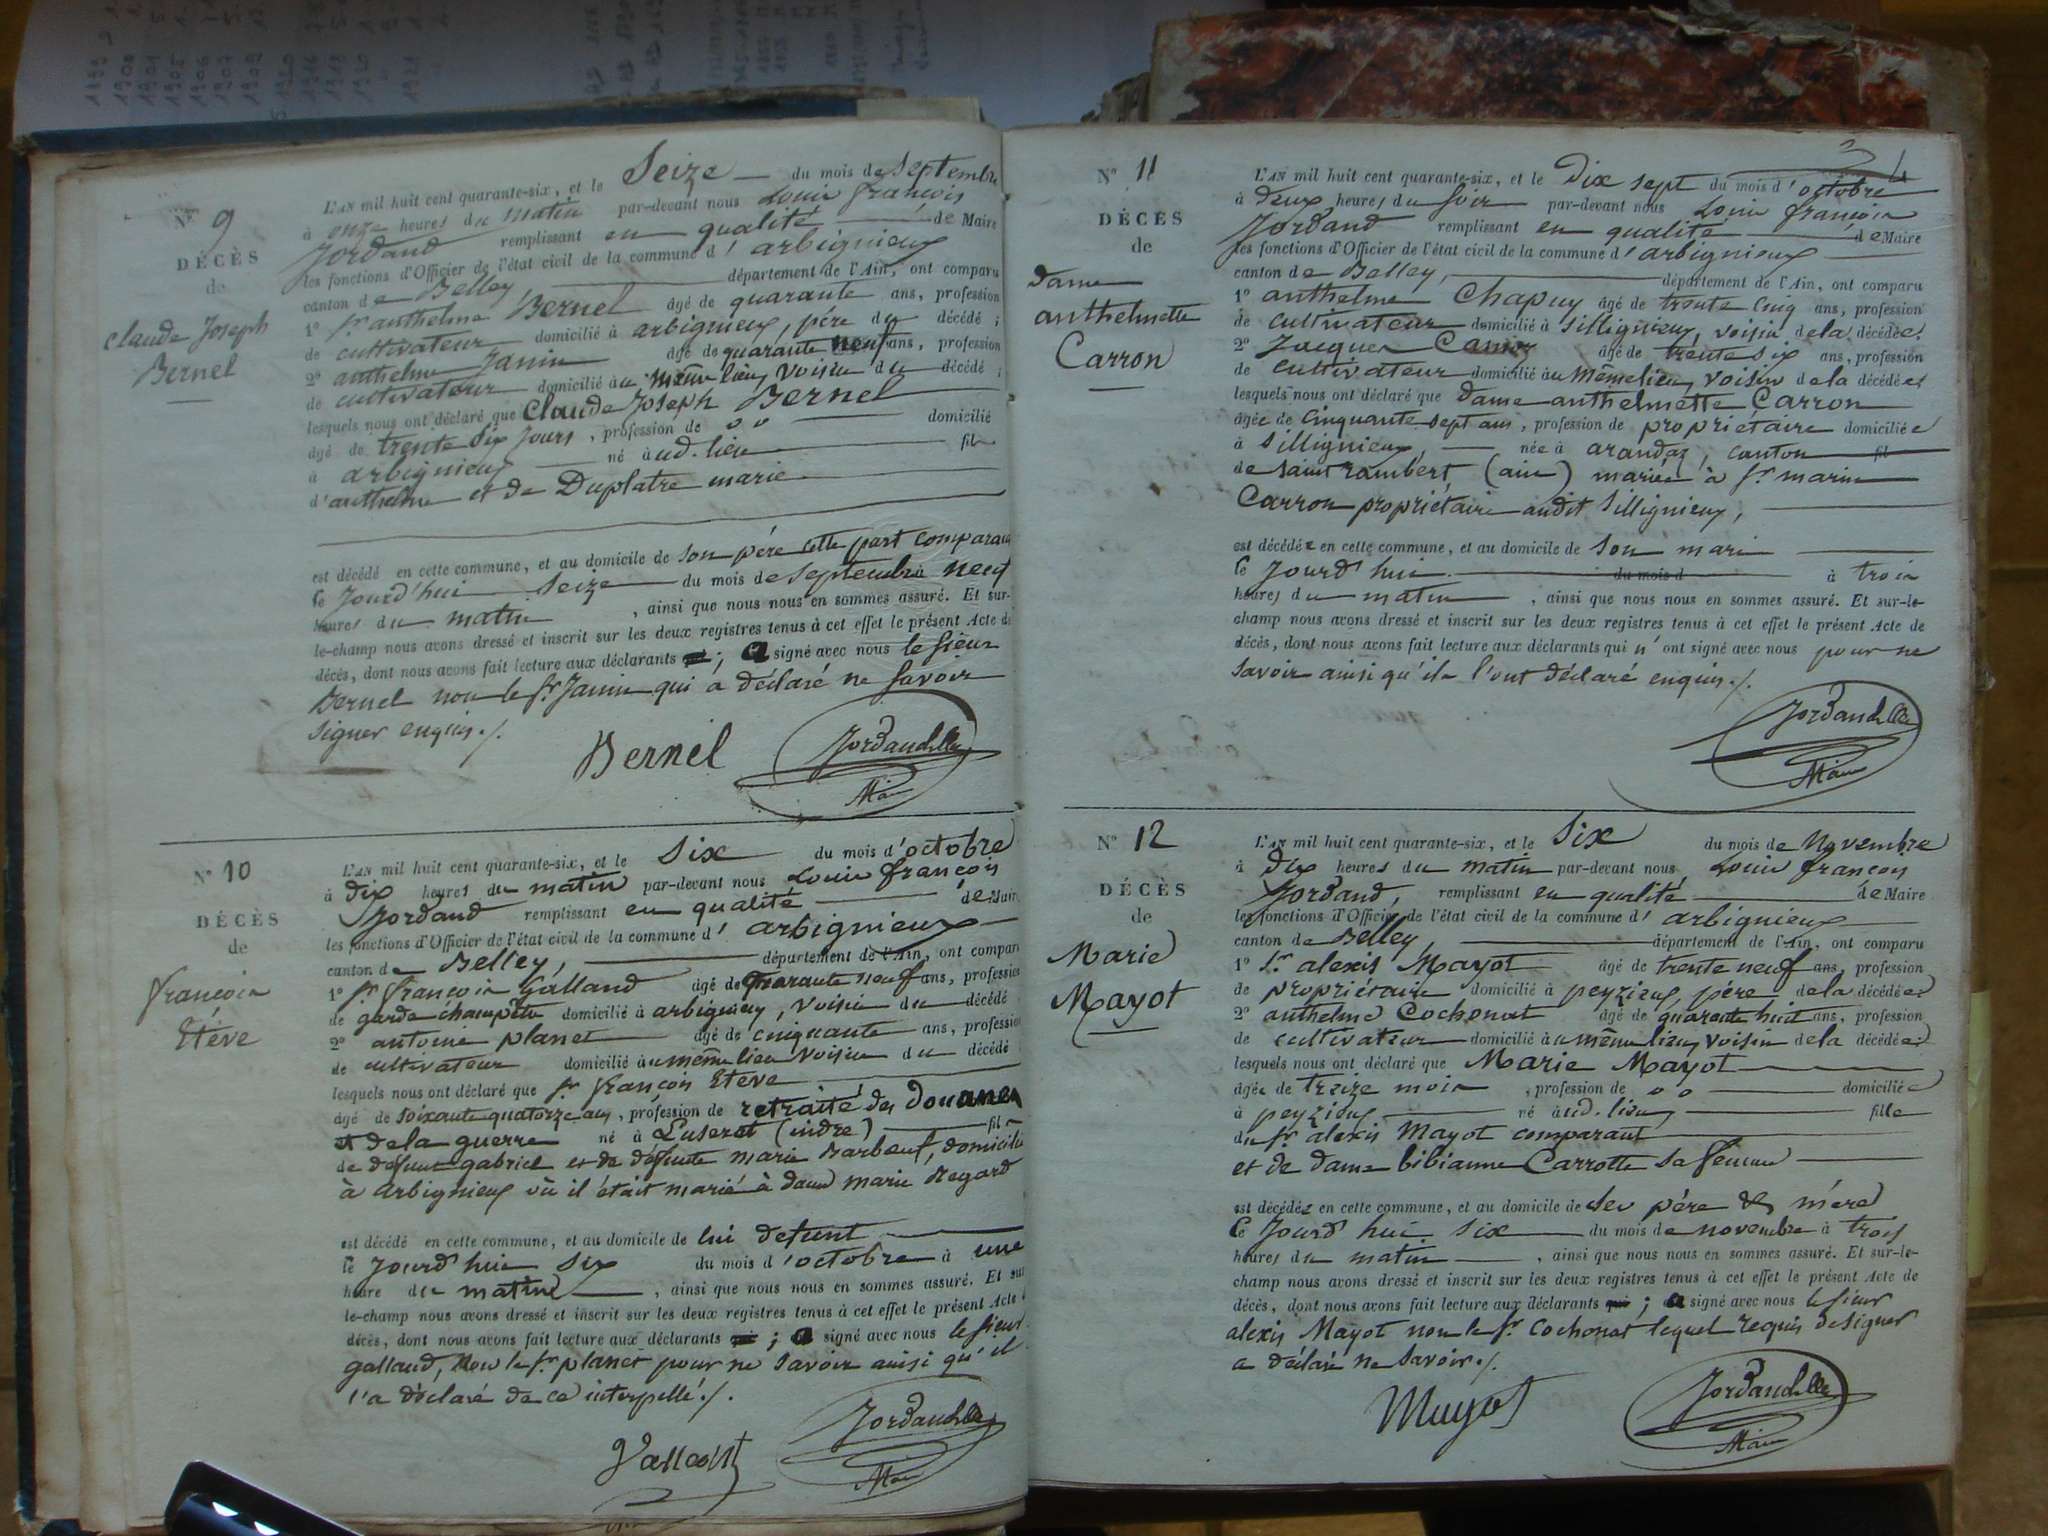 Nº 9
DÉCÈS
de
Claude Joseph
Bernel
L'AN mil huit cent quarante-six, et le Seize du mois de Septembre
à onze heures du matin par-devant nous Louis françois
Jordand remplissant en qualité de Maire
les fonctions d'Officier de l'état civil de la commune d'arbignieux
canton de Belley, département de l'Ain, ont comparu
1º Sr anthelme Bernel âgé de quarante ans, profession
de cultivateur domicilié à arbignieux, père du décédé ;
2º anthelme Janin âgé de quarante neuf ans, profession
de cultivateur domicilié au même lieu, voisin du décédé ;
lesquels nous ont déclaré que Claude Joseph Bernel
âgé de trente six jours, profession de " " domicilié
à arbignieux né aud. lieu fils
d'anthelme et de Duplatre marie
est décédé en cette commune, et au domicile de son père cette part comparant
le jourd'hui seize du mois de septembre à neuf
heures du matin, ainsi que nous nous en sommes assuré. Et sur-
le-champ nous avons dressé et inscrit sur les deux registres tenus à cet effet le présent Acte de
décès, dont nous avons fait lecture aux déclarants ; a signé avec nous le sieur
Bernel non le Sr Janin qui a déclaré ne savoir
signer enquis ./.
Bernel
Jordand
Maire
Nº 10
DÉCÈS
de
françois
Etève
L'AN mil huit cent quarante-six, et le six du mois d'octobre
à dix heures du matin par-devant nous Louis françois
Jordand remplissant en qualité de Maire
les fonctions d'Officier de l'état civil de la commune d'arbignieux
canton de Belley, département de l'Ain, ont comparu
1º Sr françois Galland âgé de quarante neuf ans, profession
de garde champêtre domicilié à arbignieux, voisin du décédé
2º antoine planet âgé de cinquante ans, profession
de cultivateur domicilié au même lieu voisin du décédé
lesquels nous ont déclaré que Sr françois Etève
âgé de soixante quatorze ans, profession de retraité des Douanes
et de la guerre né à Luseret (indre) fils
de défunt gabriel et de défunte marie Barbeuf, domicilié
à arbignieux où il était marié à dame marie Regard
est décédé en cette commune, et au domicile de lui défunt
le jourd'hui six du mois d'octobre à une
heure du matin, ainsi que nous nous en sommes assuré. Et sur
le-champ nous avons dressé et inscrit sur les deux registres tenus à cet effet le présent Acte
décès, dont nous avons fait lecture aux déclarants ; a signé avec nous le sieur
galland, non le Sr planet pour ne savoir ainsi qu'il
l'a déclaré de ce interpellé ./.
Jordand
Maire
Nº 11
DÉCÈS
de
Dame
anthelmette
Carron
L'AN mil huit cent quarante-six, et le Dix sept du mois d'octobre
à deux heures du soir par-devant nous Louis françois
Jordand remplissant en qualité de Maire
les fonctions d'Officier de l'état civil de la commune d'arbignieux
canton de Belley, département de l'Ain, ont comparu
1º anthelme Chapuy âgé de trente cinq ans, profession
de cultivateur domicilié à Sillignieux, voisin de la décédée
2º Jacques âgé de trente six ans, profession
de cultivateur domicilié au même lieu, voisin de la décédée
lesquels nous ont déclaré que Dame anthelmette Carron
âgée de cinquante sept ans, profession de propriétaire domiciliée
à Sillignieux, née à arandaz, canton fil
de saint rambert, (ain) mariée à Sr marin
Carron propriétaire audit Sillignieux,
est décédée en cette commune, et au domicile de son mari
le jourd'hui du mois d à trois
heures du matin, ainsi que nous nous en sommes assuré. Et sur-le-
champ nous avons dressé et inscrit sur les deux registres tenus à cet effet le présent Acte de
décès, dont nous avons fait lecture aux déclarants qui n'ont signé avec nous pour ne
savoir ainsi qu'ils l'ont déclaré enquis ./.
Jordand
Maire
Nº 12
DÉCÈS
de
Marie
Mayot
L'AN mil huit cent quarante-six, et le Six du mois de Novembre
à dix heures du matin par-devant nous, Louis françois
Jordand, remplissant en qualité de Maire
les fonctions d'Officier de l'état civil de la commune d'arbignieux
canton de Belley, département de l'Ain, ont comparu
1º Sr alexis Mayot âgé de trente neuf ans, profession
de propriétaire domicilié à peyzieux, père de la décédée
2º anthelme Cochonat âgé de quarante huit ans, profession
de cultivateur domicilié au même lieu, voisin de la décédée
lesquels nous ont déclaré que Marie Mayot
âgée de treize mois, profession de " " domiciliée
à peyzieux né aud. lieu, fille
du Sr alexis Mayot comparant
et de dame bibianne Carrotte sa femme
est décédée en cette commune, et au domicile de ses père & mère
le jourd'hui six du mois de novembre à trois
heures du matin, ainsi que nous nous en sommes assuré. Et sur-le-
champ nous avons dressé et inscrit sur les deux registres tenus à cet effet le présent Acte de
décès, dont nous avons fait lecture aux déclarants ; a signé avec nous le sieur
alexis Mayot non le Sr Cochonat lequel requis de signer
a déclaré ne savoir ./.
Mayot
Jordand
Maire